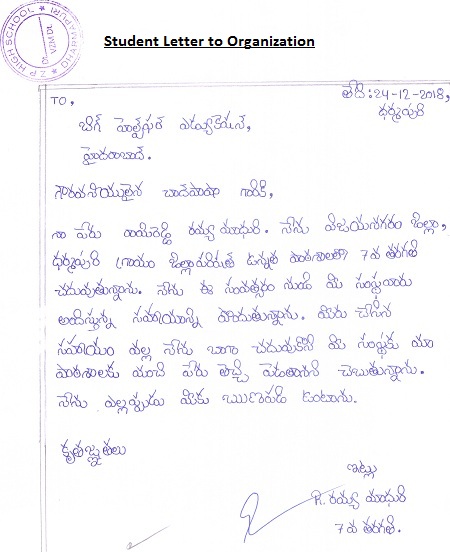 Student Letter to Organization
Z P HIGH SCHOOL * DHARMAPURI
తేది:24-12-2018,
ధర్మపురి
TO,
బిగ్ హెల్ప్ ఫర్ ఎడ్యుకేషన్,
హైదరాబాద్.
గౌరవనీయులైన చాంద్ పాషా గారికి,
నా పేరు రాయిరెడ్డి రమ్య మాధురి. నేను విజయనగరం జిల్లా,
ధర్మపురి గ్రామం జిల్లాపరిషత్ ఉన్నత పాఠశాలలో 7వ తరగతి
చదువుతున్నాను. నేను ఈ సంవత్సరం నుండి మీ సంస్థవారు
అందిస్తున్న సహాయాన్ని పొందుతున్నాను. మీరు చేసిన
సహాయం వల్ల నేను బాగా చదువుకొని మీ సంస్థకు మా
పాఠశాలకు మంచి పేరు తెచ్చి పెడతానని చెబుతున్నాను.
నేను ఎల్లప్పుడు మీకు ఋణపడి ఉంటాను.
కృతజ్ఞతలు
ఇట్లు
R. రమ్య మాధురి
7వ తరగతి.